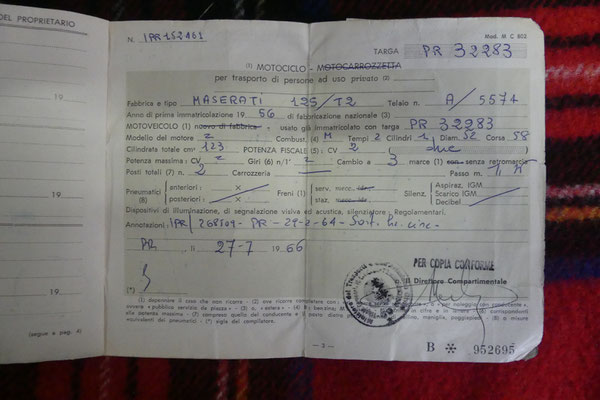 DEL PROPRIETARIO
19
19
19
19
19
(segue a pag. 4)
N. 1PR152461
Mod. M C 802
TARGA PR 32283
(1) MOTOCICLO - MOTOCARROZZETTA
per trasporto di persone ad uso privato (2)
Fabbrica e tipo MASERATI 125/T2 Telaio n. A/5574
Anno di prima immatricolazione 1956 di fabbricazione nazionale (3)
MOTOVEICOLO (1) nuovo di fabbrica - usato già immatricolato con targa PR 32283
Modello del motore 2 Combust. (4) M Tempi 2 Cilindri 1 Diam. 52 Corsa 58
Cilindrata totale cm³ 123 POTENZA FISCALE (5): CV 2 (due)
Potenza massima: CV Giri (6) n/1' Cambio a 3 marce (1) con senza retromarcia
Posti totali (7) n. 2 Carrozzeria Passo m.
Pneumatici (8) anteriori: posteriori: Freni (1) serv. mecc. idr. staz. mecc. idr. Silenz. Aspiraz. IGM Scarico IGM Decibel
Dispositivi di illuminazione, di segnalazione visiva ed acustica, silenziatore: Regolamentari.
Annotazioni: 1PR/ PR - 29-2-64 -
PR li 27-7 1966
PER COPIA CONFORME
Il Direttore Compartimentale
(*)
(1) depennare il caso che non ricorre
(*) sigla del compilatore.
— 3 —
B ※ 952695